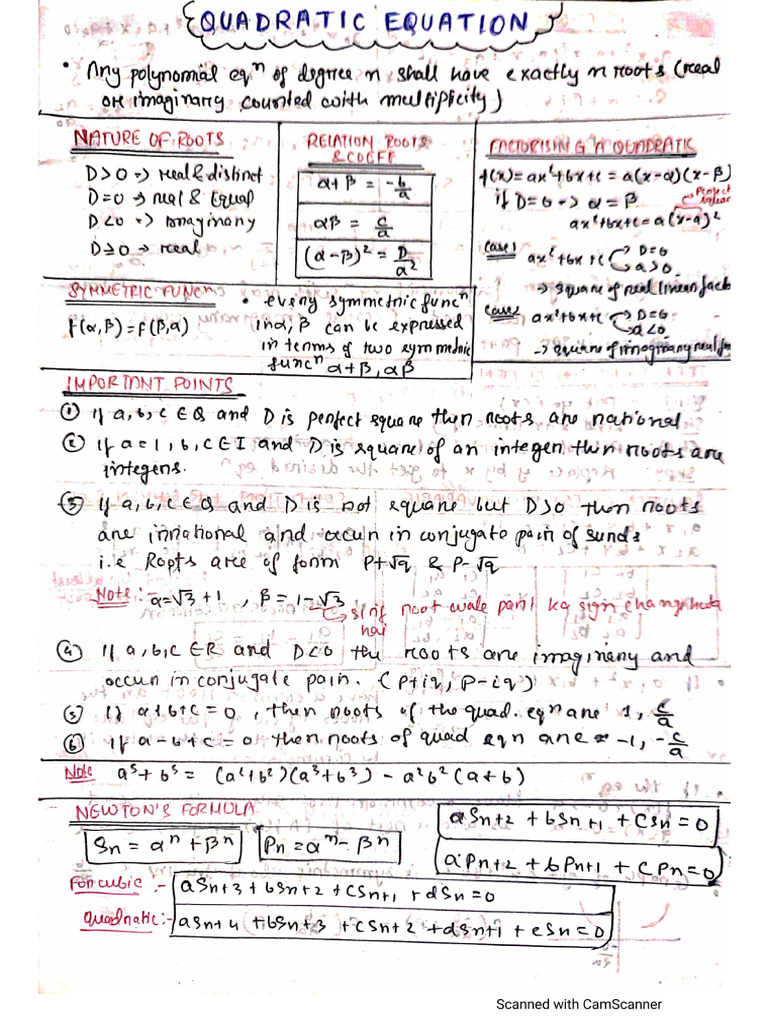 QUADRATIC EQUATION
• Any polynomial eqⁿ of degree n shall have exactly n roots (real
or imaginary counted with multiplicity)
NATURE OF ROOTS
D>0 → real & distinct
D=0 → real & Equal
D<0 → Imaginary
D≥0 → real
RELATION ROOTS
& COEFF
α+β = -b/a
αβ = c/a
(α-β)² = D/a²
FACTORISING A QUADRATIC
f(x)=ax²+bx+c=a(x-α)(x-β)
if D=0 → α=β
Perfect
linear
ax²+bx+c=a(x-α)²
Case 1 ax²+bx+c D=0
a>0
→ square of real linear fact
Case 2 ax²+bx+c D=0
a<0
→ square of imaginary
SYMMETRIC FUNCⁿ
f(α,β)=f(β,α)
• every symmetric funcⁿ
in α,β can be expressed
in terms of two symmetric
funcⁿ α+β, αβ
IMPORTANT POINTS
① if a,b,c ∈Q and D is perfect square then roots are rational
② if a=1, b,c∈I and D is square of an integer then roots are
integers.
③ If a,b,c ∈Q and D is not square but D>0 then roots
are irrational and occur in conjugate pair of surds
i.e Roots are of form P+√q & P-√q
Note: α=√3+1 , β=1-√3
sirf root wale part ka sign change hota
hai
④ If a,b,c ∈R and D<0 the roots are imaginary and
occur in conjugate pair. (P+iq, P-iq)
⑤ If a+b+c=0, then roots of the quad. eqn are 1, c/a
⑥ If a-b+c=0 then roots of quad eqn are -1, -c/a
Note a⁵+b⁵ = (a²+b²)(a³+b³) - a²b²(a+b)
NEWTON'S FORMULA
Sn = αⁿ+βⁿ
Pn = αⁿ-βⁿ
aSn+2 + bSn+1 + CSn = 0
aPn+2 + bPn+1 + CPn = 0
For cubic :- aSn+3 + bSn+2 + CSn+1 + dSn = 0
quadratic :- aSn+4 + bSn+3 + CSn+2 + dSn+1 + eSn = 0
Scanned with CamScanner